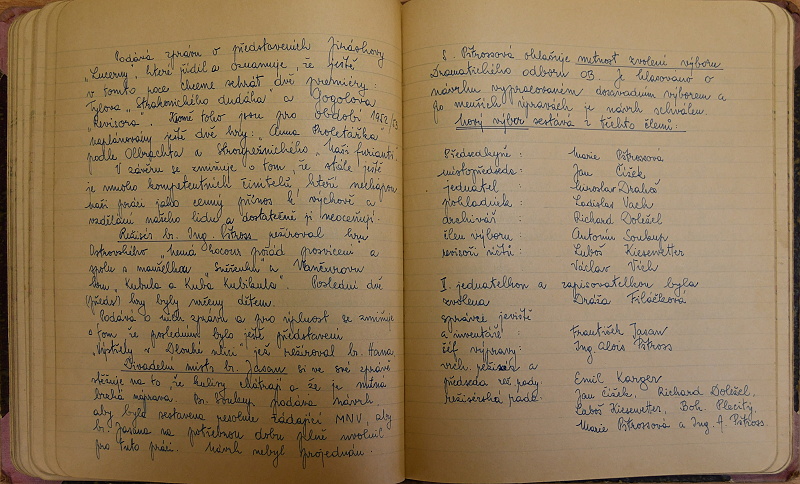 Podává zprávu o představeních Jiráskovy
„Lucerny“, kterou řídil a oznamuje, že ještě
v tomto roce chceme sehrát dvě premiéry:
Tylova „Strakonického dudáka“ a Gogolova
„Revisora“. Kromě toho jsou pro období 1952/53
naplánovány ještě dvě hry: „Anna Proletářka“
podle Olbrachta a Stroupežnického „Naši furianti“.
V závěru se zmiňuje o tom, že stále ještě
je mnoho kompetentních činitelů, kteří nechápou
naši práci jako cenný přínos k výchově a
vzdělání našeho lidu a dostatečně ji neoceňují.
Režisér br. Ing. Pitross režíroval hru
Ostrovského „Nemá kocour pořád posvícení“ a
spolu s manželkou „Sněženku“ a Vančurovu
hru „Kubula a Kuba Kubikula“. Poslední dvě
hry byly určeny dětem.
Podává o nich zprávu a pro úplnost se zmiňuje
o tom, že posledním bylo ještě představení
„Výstřely v Dlouhé ulici“ jež režíroval br. Hana.
Divadelní mistr b. Jasan si ve své zprávě
stěžuje na to, že kulisy chátrají a že je nutna
brzká náprava. Br. Soukup podává návrh,
aby byla sestavena resoluce žádající MNV, aby
b. Jasana na potřebnou dobu plně uvolnil
pro tuto práci. Návrh nebyl projednán.
S. Pitrossová ohlašuje nutnost zvolení výboru
Dramatického odboru OB. Je hlasováno o
návrhu vypracovaném dosavadním výborem a
po menších úpravách je návrh schválen.
Nový výbor sestává z těchto členů:
Předsedkyně: Marie Pitrossová
místopředseda: Jan Čížek
jednatel: Miroslav Drahoš
pokladník: Ladislav Vach
archivář: Richard Doležel
člen výboru: Antonín Soukup
revisoři účtů: Luboš Kiesewetter
Václav Vich
I. jednatelkou a zapisovatelkou byla
zvolena Dráža Filáčková
správce jeviště
a inventáře František Jasan
šéf výpravy: Ing. Alois Pitross
vrch. režisér a
předseda rež. rady Emil Karger
režisérská rada: Jan Čížek, Richard Doležel,
Luboš Kiesewetter, Boh. Placitý,
Marie Pitrossová a Ing. A. Pitross.